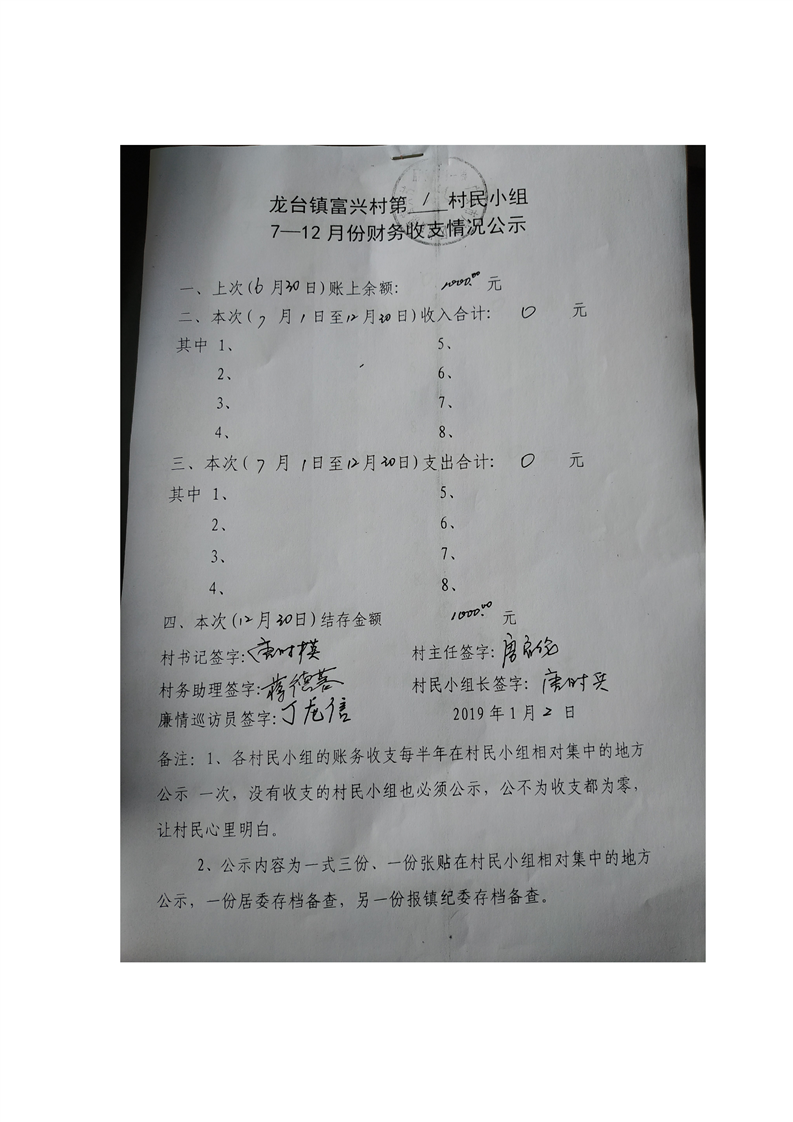 龙台镇富兴村第 1 村民小组
7—12月份财务收支情况公示
一、上次(6月30日)账上余额： 1000.00 元
二、本次(7月1日至12月30日)收入合计： 0 元
其中 1、 5、
2、 6、
3、 7、
4、 8、
三、本次(7月1日至12月30日)支出合计： 0 元
其中 1、 5、
2、 6、
3、 7、
4、 8、
四、本次(12月30日)结存金额 1000.00 元
村书记签字： 村主任签字：
村务助理签字：蒋德蓉 村民小组长签字：
廉情巡访员签字：丁龙信 2019年1月2日
备注：1、各村民小组的账务收支每半年在村民小组相对集中的地方
公示 一次，没有收支的村民小组也必须公示，公不为收支都为零，
让村民心里明白。
2、公示内容为一式三份、一份张贴在村民小组相对集中的地方
公示，一份居委存档备查，另一份报镇纪委存档备查。